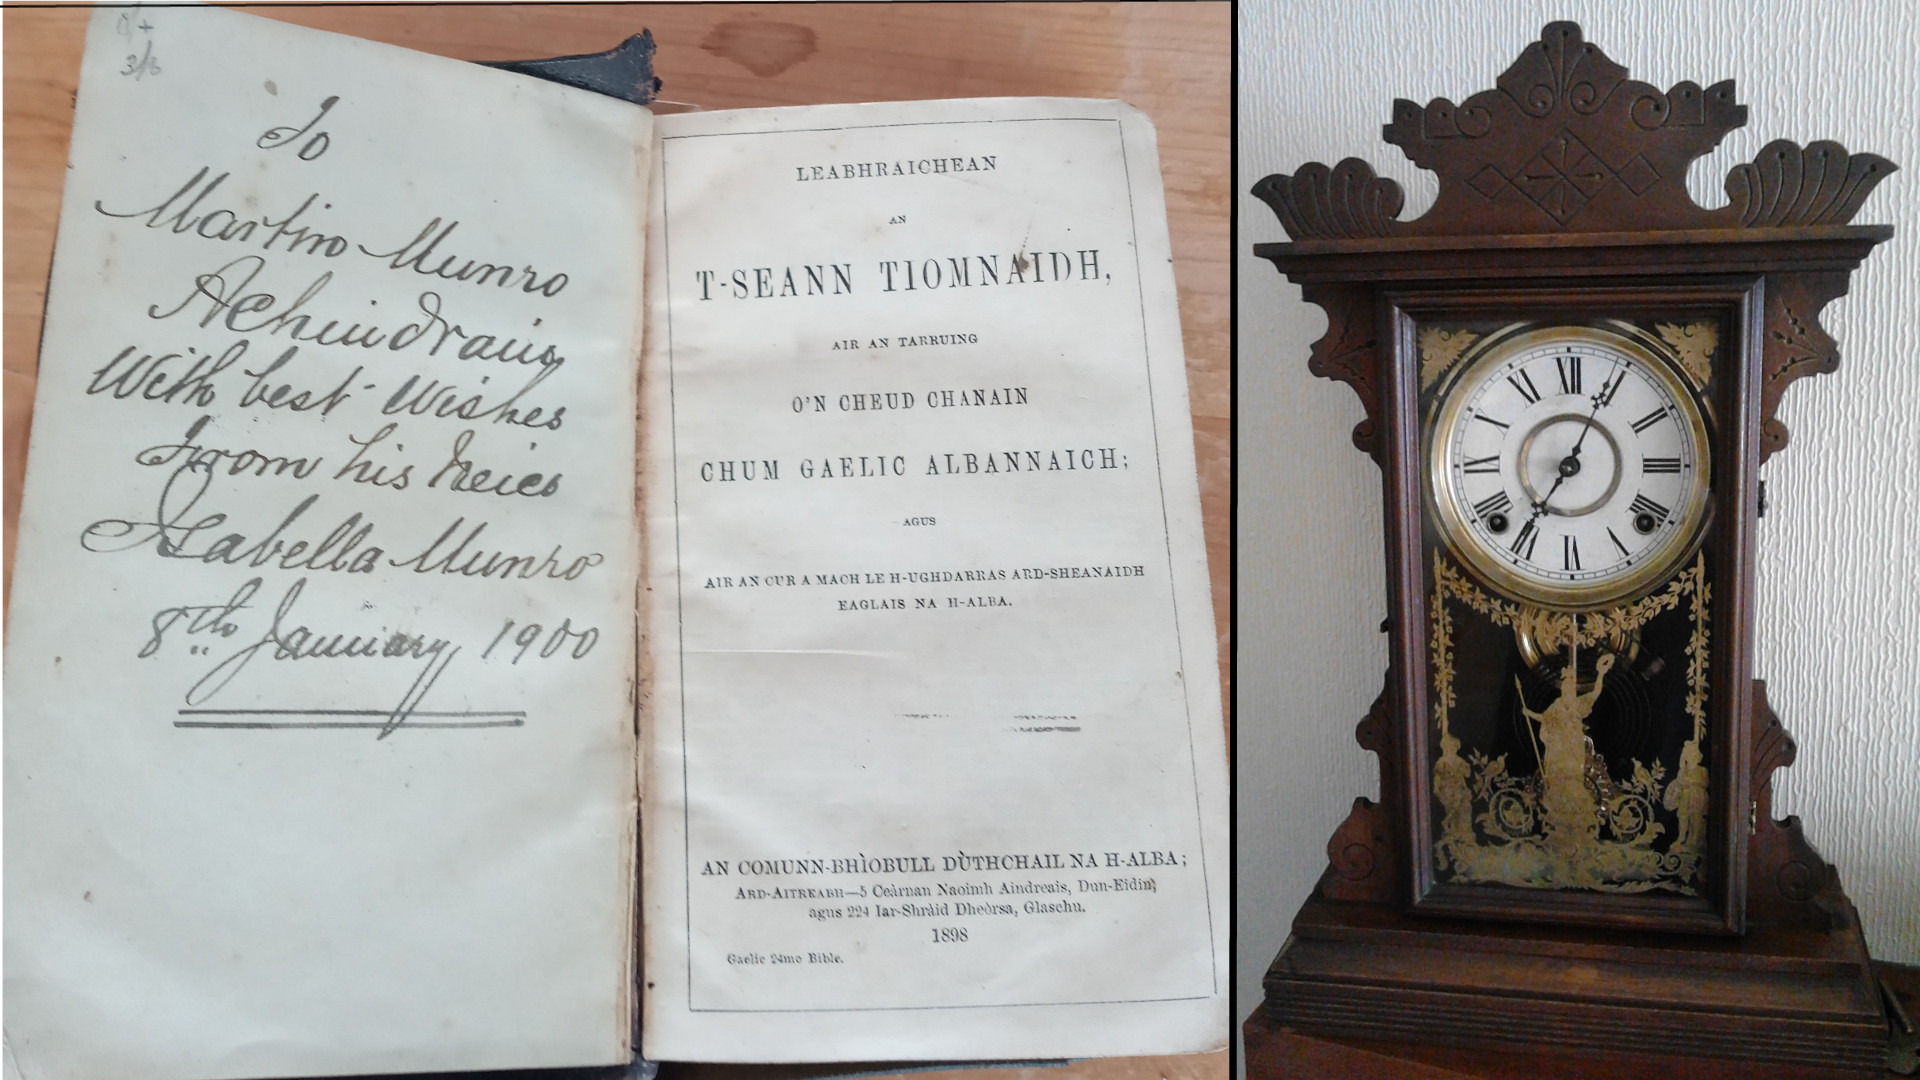 3/6
To
Martin Munro
Achindrain
With best Wishes
From his Neice
Isabella Munro
8th January 1900
LEABHRAICHEAN
AN
T-SEANN TIOMNAIDH,
AIR AN TARRUING
O'N CHEUD CHANAIN
CHUM GAELIC ALBANNAICH;
AGUS
AIR AN CUR A MACH LE H-UGHDARRAS ARD-SHEANAIDH
EAGLAIS NA H-ALBA.
AN COMUNN-BHÌOBULL DÙTHCHAIL NA H-ALBA;
ARD-AITREABH—5 Ceàrnan Naoimh Aindreais, Dun-Eidin;
agus 224 Iar-Shràid Dheòrsa, Glaschu.
1898
Gaelic 24mo Bible.
XII
I
II
III
IIII
V
VI
VII
VIII
IX
X
XI